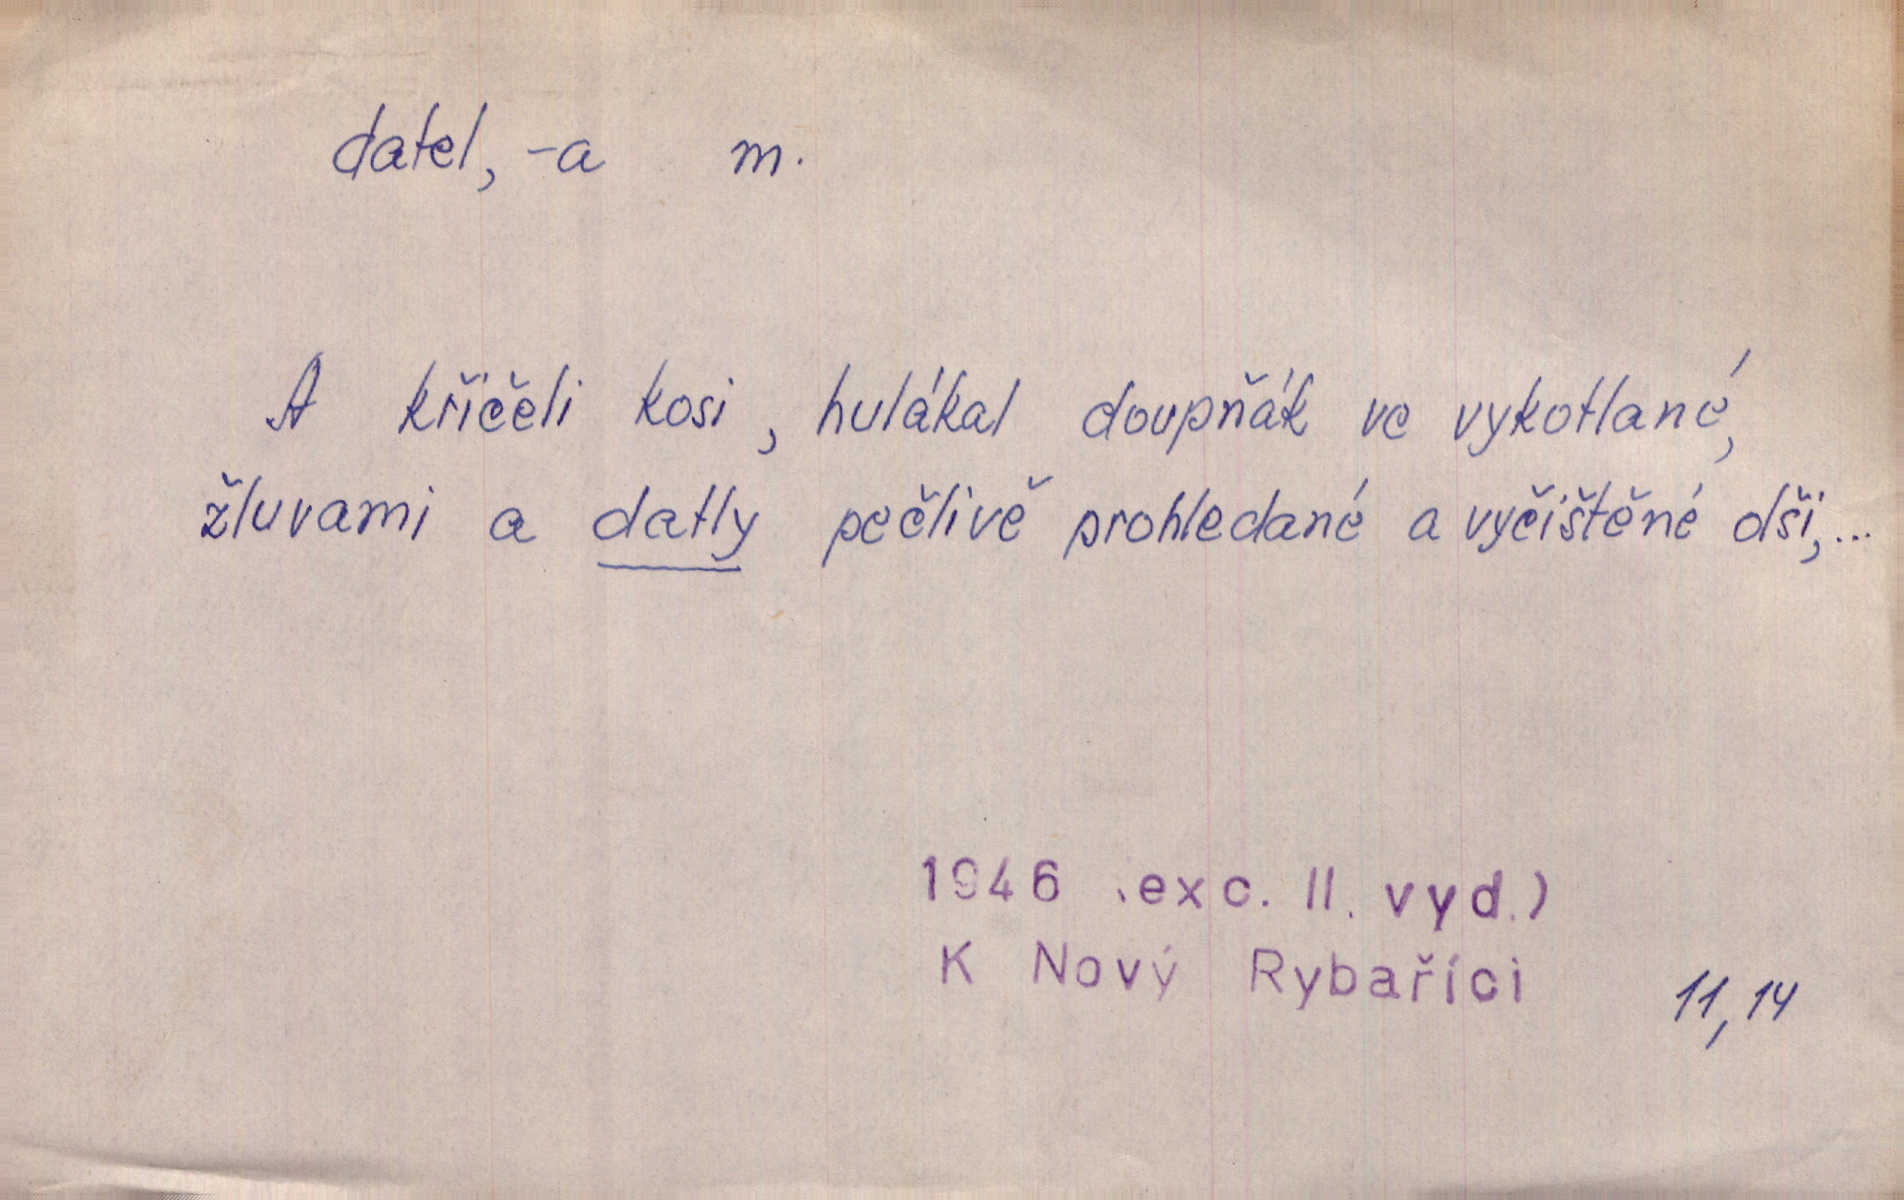 datel, -a m.
A křičeli kosi, hulákal doupňák ve vykotlané,
žluvami a datly pečlivě prohledané a vyčištěné dši,...
1946 (exc. II. vyd.)
K Nový Rybaříci
11, 14